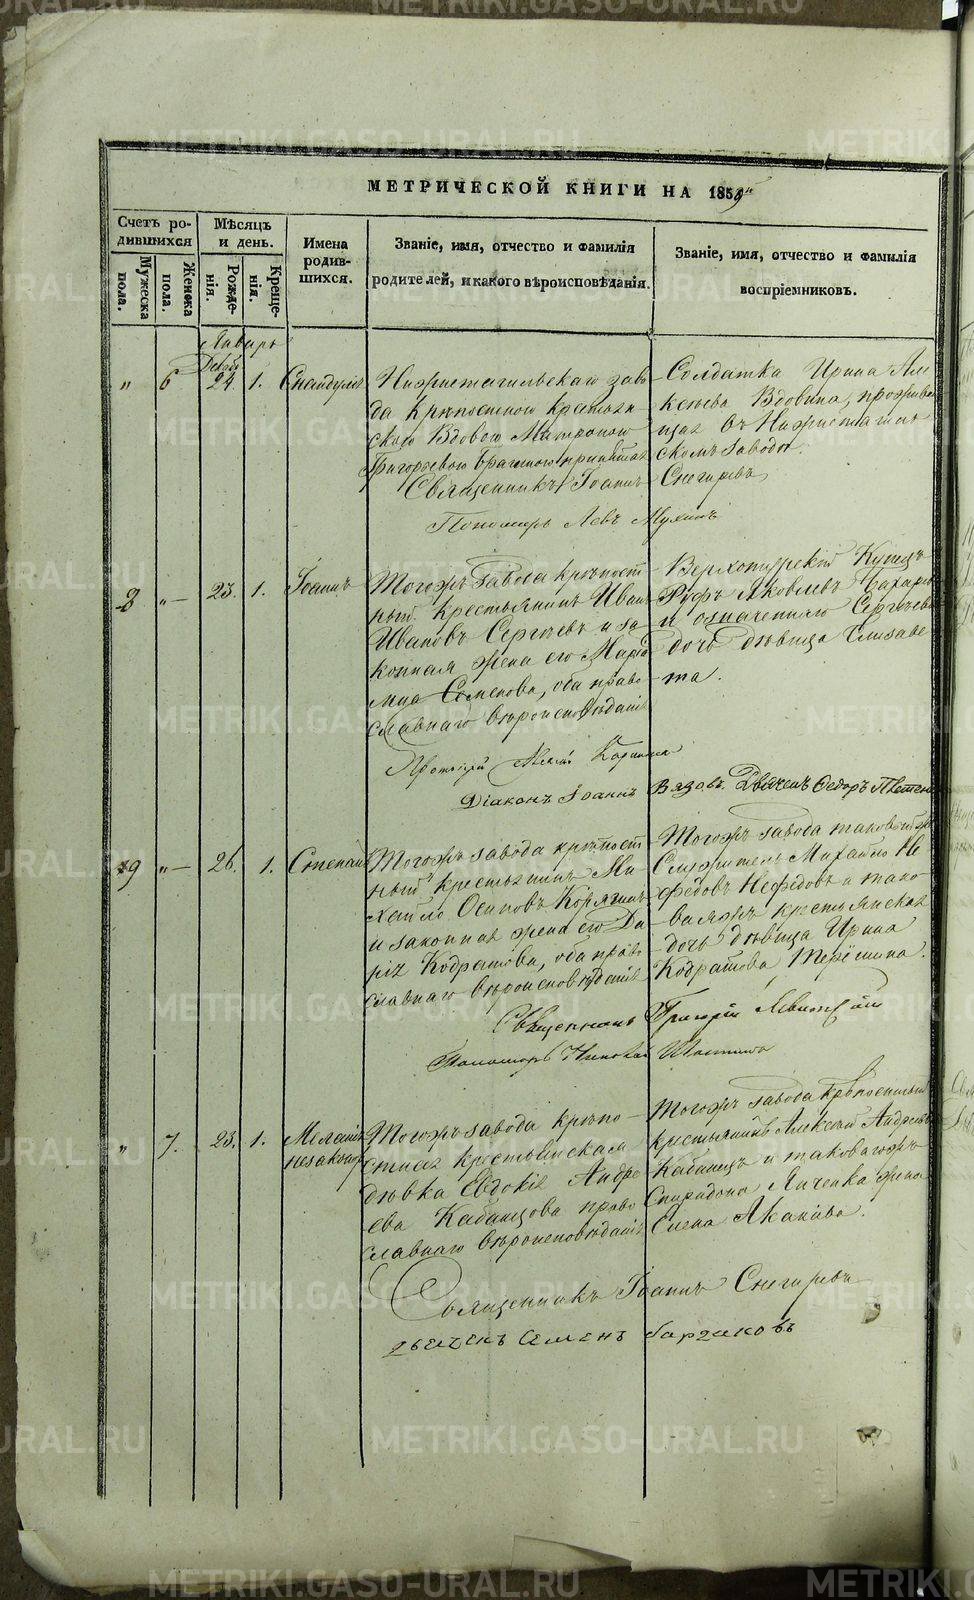 МЕТРИЧЕСКОЙ КНИГИ НА 1859й
Счетъ ро-
дившихся
Мужеска
пола.
Женска
пола.
Мѣсяцъ
и день.
Рожде-
нія.
Креще-
нія.
Имена
родив-
шихся.
Званіе, имя, отчество и фамилія
родителей, и какого вѣроисповѣданія.
Званіе, имя, отчество и фамилія
воспріемниковъ.
Январь
Декаб
" 6 24. 1.
Нижнетагильскаго заво-
да крѣпостною крестьян-
скою Вдовою Матроною
Григорьевою
Солдатка Ирина Але
ксѣева Вдовина, прожива
щая въ Нижнетагиль
скомъ заводѣ.
Священникъ Іоаннъ Снегиревъ
Пономарь Левъ Мухинъ
8 " 23. 1. Іоаннъ
Тогожъ завода крѣпост
ный крестьянинъ Иванъ
Ивановъ Сергѣевъ и за
конная жена его Марѳа
Семенова, оба право
славнаго вѣроисповѣданія
Верхотурскій Купецъ
Руфъ Яковлевъ
и означеннаго Сергѣева
дочь дѣвица Елисаве
та.
Протоіерей
Діаконъ Іоаннъ Вязовъ. Дьячекъ Ѳедоръ
9 " 26. 1. Степанъ
Тогожъ завода крѣпост
ный крестьянинъ Ми
хайло Осиповъ Корякинъ
и законная жена его Да
рія Кодратова, оба право
славнаго вѣроисповѣданія
Тогожъ завода
Служитель Михайло Не
федовъ Нефедовъ и тако
ваяжъ крестьянская
дочь дѣвица Ирина
Кодратова Терёшина.
Священникъ Григорій Левитскій
Пономарь Николай
" 7. 23. 1. Меланія
незаконор
Тогожъ завода крѣпо-
стная крестьянская
дѣвка Евдокія Андре
ева Кабанцова право
славнаго вѣроисповѣданія
Тогожъ завода крѣпостный
крестьянинъ Алексѣй Андреевъ
Кабанецъ и таковагожъ
Спиридона Янченка жена
Елена Акакіева.
Священникъ Іоаннъ Снегиревъ
дьячекъ Семенъ
METRIKI.GASO-URAL.RU